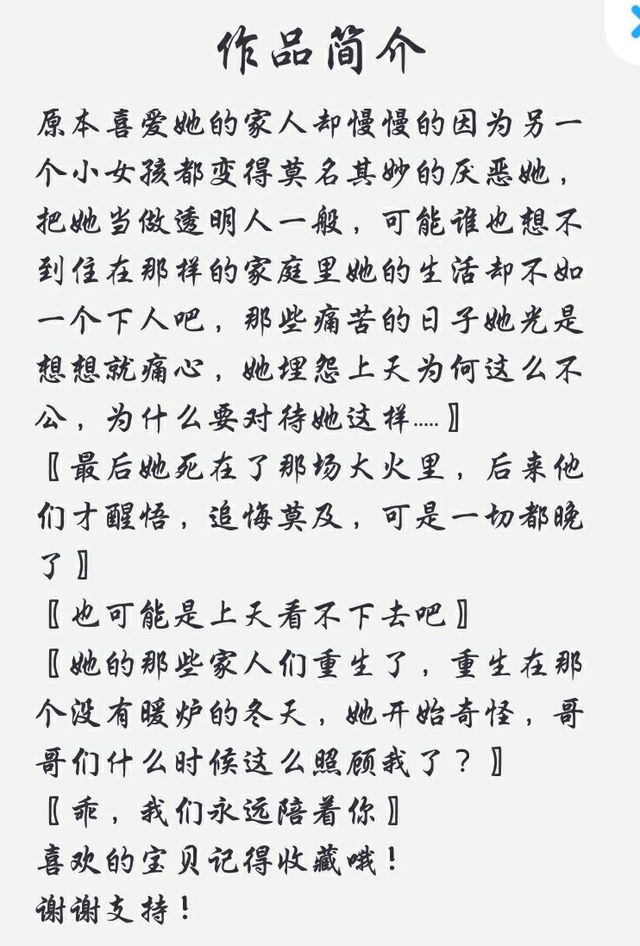 作品简介
原本喜爱她的家人却慢慢的因为另一
个小女孩都变得莫名其妙的厌恶她，
把她当做透明人一般，可能谁也想不
到住在那样的家庭里她的生活却不如
一个下人吧，那些痛苦的日子她光是
想想就痛心，她埋怨上天为何这么不
公，为什么要对待她这样.....〗
〖最后她死在了那场大火里，后来他
们才醒悟，追悔莫及，可是一切都晚
了〗
〖也可能是上天看不下去吧〗
〖她的那些家人们重生了，重生在那
个没有暖炉的冬天，她开始奇怪，哥
哥们什么时候这么照顾我了？〗
〖乖，我们永远陪着你〗
喜欢的宝贝记得收藏哦！
谢谢支持！